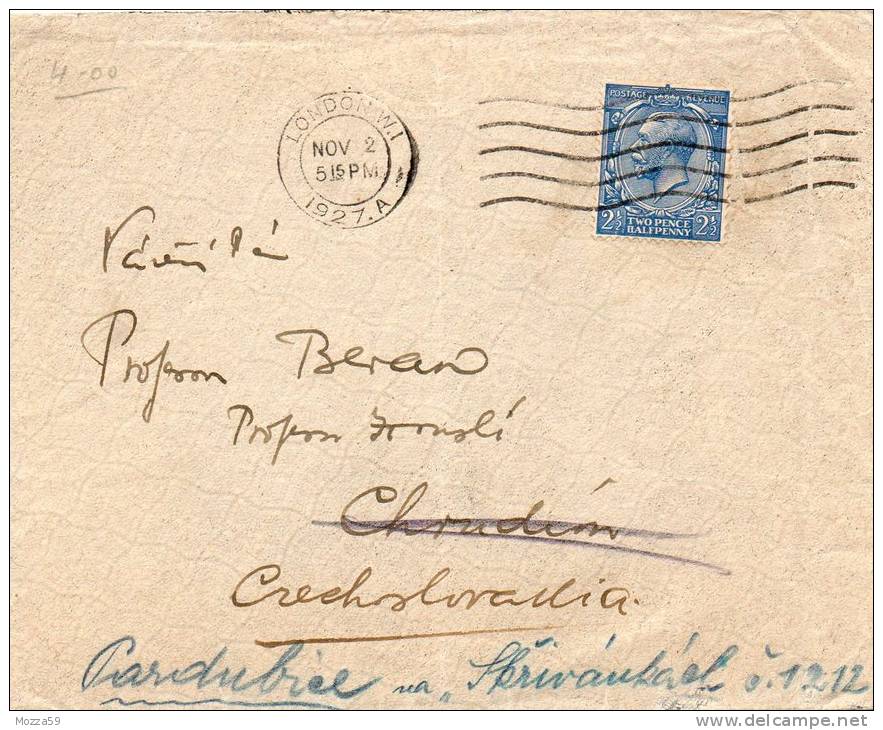 4-00
LONDON.W.1
NOV 2
5 15 PM
1927.A
POSTAGE REVENUE
2½ TWO PENCE HALFPENNY 2½
Professor Beran
Professor
Chrudim
Czechoslovakia.
Pardubice na „Skřivánkách" č. 1212
Mozza59